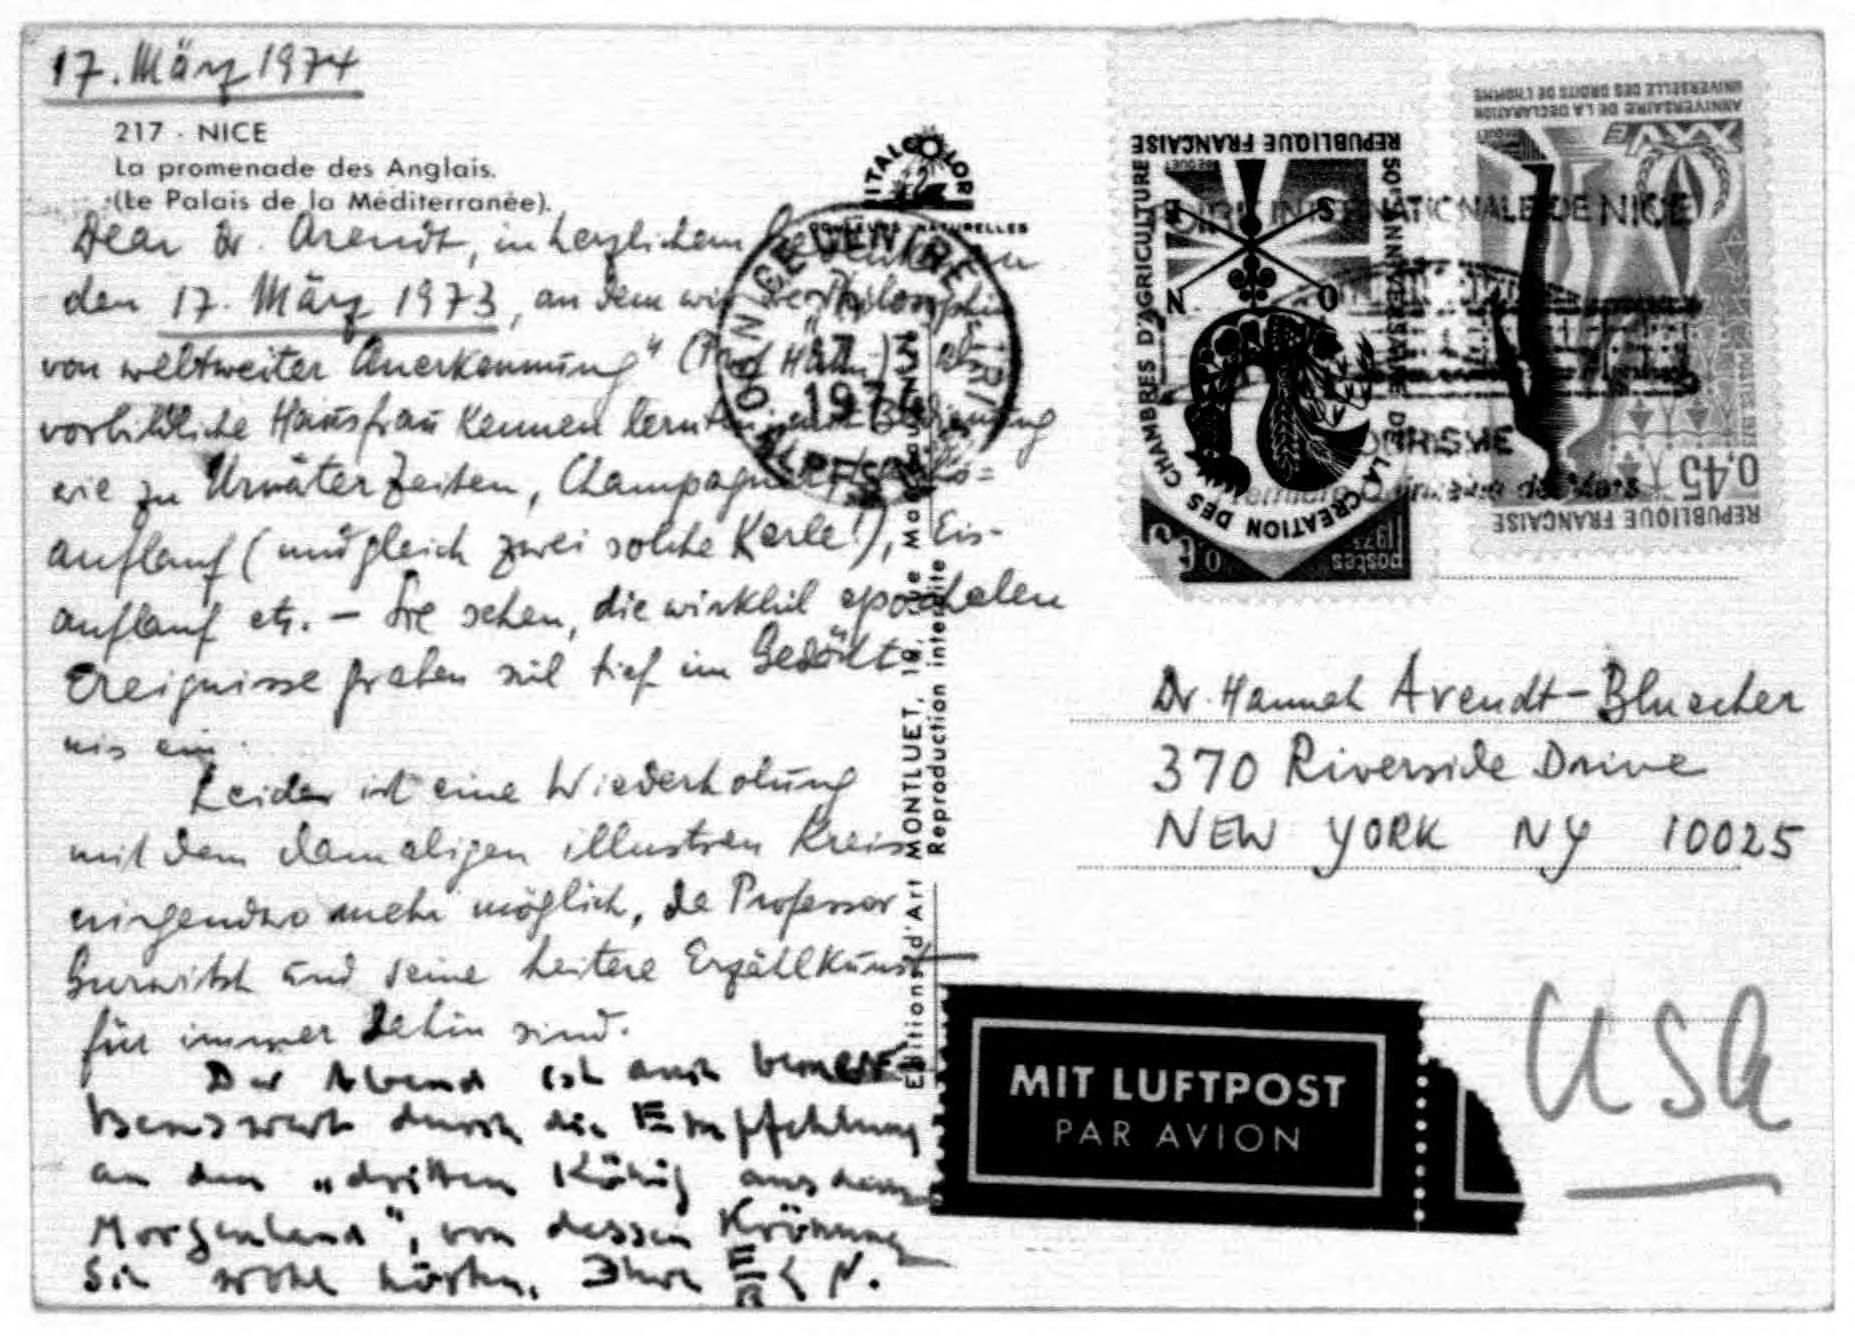 17. März 1974
217 - NICE
La promenade des Anglais.
(Le Palais de la Méditerranée).
Dear Dr. Arendt, in herzlichem
den 17. März 1973, an dem wir
von weltweiter Anerkennung" (Prof
vorbildliche Hausfrau kennen lernten
wie zu Urväter Zeiten, Champagner
auflauf (und gleich zwei solche Kerle!), Eis-
auflauf etc. - Sie sehen, die wirklich epochalen
Ereignisse graben sich tief im Gedächt
nis ein.
Leider ist eine Wiederholung
mit dem damaligen illustren Kreis
nirgendwo mehr möglich, da Professor
Gurwitsch und seine heitere Erzählkunst
für immer dahin sind.
Der Abend ist auch bemer
kenswert durch die Empfehlung
an den "dritten König aus dem
Morgenland", von dessen Krönung
Sie wohl hörten. Ihre
ITALCOLOR
COULEURS NATURELLES
06 NICE CENTRE
17-3
1974
ALPES
Editions d'Art MONTLUET, 18, rue
Reproduction interdite
REPUBLIQUE FRANÇAISE
50e ANNIVERSAIRE DE LA CREATION DES CHAMBRES D'AGRICULTURE
N O S
postes 1974
XXVe
ANNIVERSAIRE DE LA DECLARATION
UNIVERSELLE DES DROITS DE L'HOMME
0,45
REPUBLIQUE FRANÇAISE
INTERNATIONALE DE NICE
TOURISME
Dr. Hannah Arendt-Bluecher
370 Riverside Drive
NEW YORK NY 10025
USA
MIT LUFTPOST
PAR AVION